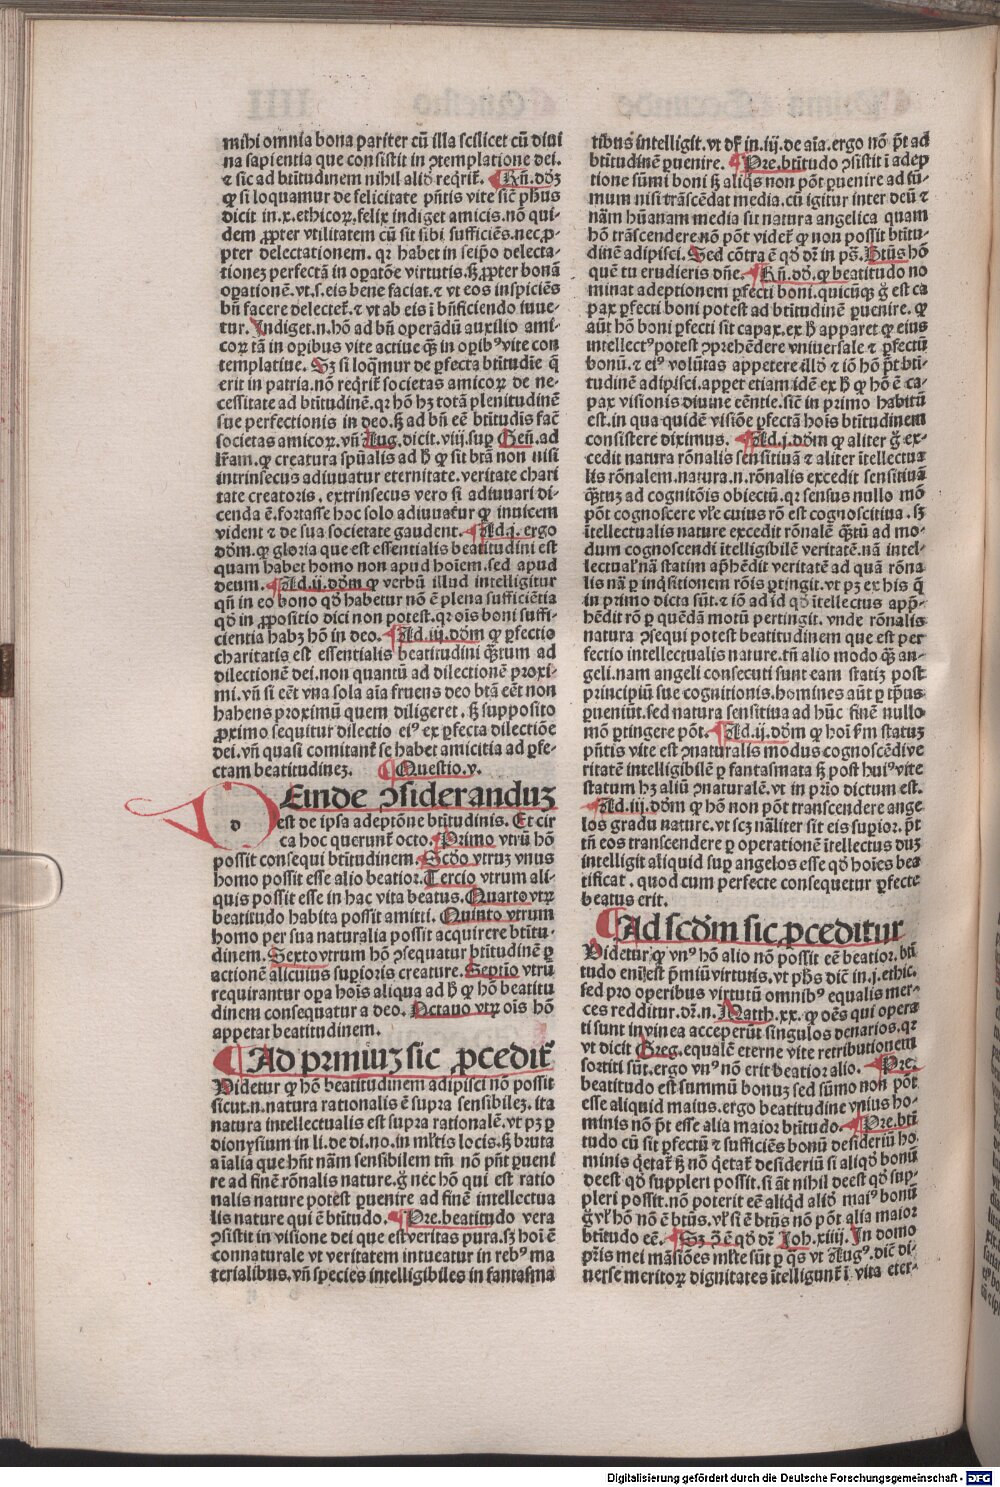 mihi omnia bona pariter cū illa scilicet cū diui
na sapientia que consistit in ꝯtemplatione dei.
⁊ sic ad btītudinem nihil aliđ reqrit̄. Rn̄. dōꝫ
ꝙ si loquamur de felicitate pn̄tis vite sic̄ ph̄us
dicit in.x.ethicoꝝ.felix indiget amicis.nō qui-
dem ꝓpter vtilitatem cū sit sibi sufficiēs.nec ꝓ-
pter delectationem. qꝛ habet in seip̄o delecta-
tionez perfectā in opatōe virtutis.sꝫ ꝓpter bonā
oꝑationē.vt.s.eis bene faciat.⁊ vt eos inspiciēs
bn̄ facere delectet̄. ⁊ vt ab eis ī bn̄ficiendo iuue-
tur. Indiget.n.hō ad bn̄ operādū auxilio ami-
coꝝ tā in oꝑibus vite actiue qꝫ̄ in oꝑibꝰ vite con
templatiue. Sꝫ si loq̄mur de ꝑfecta btītudīe q̄
erit in patria.nō reqrit̄ societas amicoꝝ de ne-
cessitate ad btītudinē.qꝛ hō hꝫ totā plenitudinē
sue perfectionis in deo.sꝫ ad bn̄ eē btītudīs fac̄
societas amicoꝝ. vn̄ Aug. dicit. viij. suꝑ Gen̄. ad
lr̄am. ꝙ creatura spūalis ad ħ ꝙ sit btā non nisi
intrinsecus adiuuatur eternitate. veritate chari
tate creatoris . extrinsecus vero si adiuuari di-
cenda ē. fortasse hoc solo adiuuat̄ur ꝙ inuicem
vident ⁊ de sua societate gaudent. Ad.j. ergo
dōm. ꝙ gloria que est essentialis beatitudini est
quam habet homo non apud hoīem. sed apud
deum. Ad.ij.dōm ꝙ verbū illud intelligitur
qn̄ in eo bono qđ habetur nō ē plena sufficiētia
qđ in ꝓpositio dici non potest. qꝛ ois boni suffi-
cientia habꝫ hō in deo. Ad.iij.dōm ꝙ ꝑfectio
charitatis est essentialis beatitudini qꝫ̄tum ad
dilectionē dei. non quantū ad dilectionē proxi-
mi. vn̄ si eēt vna sola aīa fruens deo btā eēt non
habens proximū quem diligeret . sꝫ supposito
ꝓximo sequitur dilectio eiꝰ ex ꝑfecta dilectiōe
dei. vn̄ quasi comitant̄ se habet amicitia ad ꝑfe-
ctam beatitudinez. Questio.v.
d
Einde ꝯsideranduꝫ
est de ipsa adeptōne btītudinis. Et cir
ca hoc querunt̄ octo. Primo vtrū hō
possit consequi btītudinem. Scđo vtruꝫ vnus
homo possit esse alio beatior. Tercio vtrum ali-
quis possit esse in hac vita beatus. Quarto vtꝝ
beatitudo habita possit amitti. Quinto vtrum
homo per sua naturalia possit acquirere btītu-
dinem. Sexto vtrum hō ꝯsequatur btītudinē ꝑ
actionē alicuius suꝑioris creature. Septīo vtrū
requirantur oꝑa hoīs aliqua ad ħ ꝙ hō beatitu
dinem consequatur a deo. Octauo vtꝝ oīs hō
appetat beatitudinem.
Ad prımiuꝫ sic ꝓcedit̄
Videtur ꝙ hō beatitudinem adipisci nō possit
sicut.n.natura rationalis ē supra sensibilez. ita
natura intellectualis est supra rationalē.vt pꝫ ꝑ
dionysium in li. de di. no. in ml̄tis locis. sꝫ bruta
aīalia que hn̄t nām sensibilem tm̄ nō pn̄t ꝑueni
re ad finē rōnalis nature. g̃ nec hō qui est ratio
nalis nature potest ꝑuenire ad finē intellectua
lis nature qui ē btītudo. Pre. beatitudo vera
ꝯsistit in visione dei que est veritas pura. sꝫ hoī ē
connaturale vt veritatem intueatur in rebꝰ ma
terialibus. vn̄ species intelligibiles in fantasma
tibus intelligit. vt df̄ in.iij.de aīa. ergo nō pt̄ ad
btītudinē ꝑuenire. Pre. btītudo ꝯsistit ī adep
tione sūmi boni sꝫ aliq̄s non pōt ꝑuenire ad sū-
mum nisi trāscēdat media. cū igitur inter deū ⁊
nām hūanam media sit natura angelica quam
hō trāscendere nō pōt videt̄ ꝙ non possit btītu-
dinē adipisci. Sed cōtra ē qđ dr̄ in ps̄. Btūs hō
quē tu erudieris dn̄e. Rn̄. dō. ꝙ beatitudo no
minat adeptionem ꝑfecti boni. quicūqꝫ g̃ est ca
pax ꝑfecti boni potest ad btītudinē ꝑuenire. ꝙ
aūt hō boni ꝑfecti sit capax. ex ħ apparet ꝙ eius
intellectꝰ potest ꝯprehēdere vniuersale ⁊ ꝑfectū
bonū. ⁊ eiꝰ volūtas appetere illđ ⁊ iō hō pt̄ btī-
tudinē adipisci. appet etiam idē ex ħ ꝙ hō ē ca-
pax visionis diuine eēntie. sic̄ in primo habitū
est. in qua quidē visiōe ꝑfectā hoīs btītudinem
consistere diximus. Ad.j.dōm ꝙ aliter g̃ ex-
cedit natura rōnalis sensitiuā ⁊ aliter ītellectua
lis rōnalem. natura.n.rōnalis excedit sensitiuā
qꝫ̄tuꝫ ad cognitōis obiectū. qꝛ sensus nullo mō
pōt cognoscere vl̄e cuius rō est cognoscitiua. sꝫ
ītellectualis nature excedit rōnalē qꝫ̄tū ad mo-
dum cognoscendi ītelligibilē veritatē. nā intel-
lectual̄ nā statim apꝧēdit veritatē ad quā rōna
lis nā ꝑ inq̄sitionem rōis ꝑtingit. vt pꝫ ex his q̄
in primo dicta sūt. ⁊ iō ad id qđ ītellectus app̄-
hēdit rō ꝑ quēdā motū pertingit. vnde rōnalis
natura ꝯsequi potest beatitudinem que est per
fectio intellectualis nature. tn̄ alio modo qꝫ̄ an-
geli. nam angeli consecuti sunt eam statiꝫ post
principiū sue cognitionis. homines aūt ꝑ tp̄us
ꝑueniūt. sed natura sensitiua ad hūc finē nullo
mō ꝑtingere pōt. Ad.ij.dōm ꝙ hoī f̄m statuꝫ
pn̄tis vite est ꝯnaturalis modus cognoscēdi ve
ritatē intelligibilē ꝑ fantasmata sꝫ post huiꝰ vite
statum hꝫ aliū ꝯnaturalē. vt in prīo dictum est.
Ad.iij.dōm ꝙ hō non pōt transcendere ange
los gradu nature. vt scꝫ nāliter sit eis suꝑior. pt̄
tn̄ eos transcendere ꝑ operationē ītellectus duꝫ
intelligit aliquid suꝑ angelos esse qđ hoīes bea
tificat . quod cum perfecte consequetur ꝑfecte
beatus erit.
Ad scđm sic ꝓceditur
Videtur ꝙ vnꝰ hō alio nō possit eē beatior. btī
tudo enī est p̄miū virtutis. vt ph̄s dic̄ in.j.ethic.
sed pro operibus virtutū omnibꝰ equalis mer-
ces redditur. dr̄.n. Matth.xx. ꝙ oēs qui opera
ti sunt in vinea acceperūt singulos denarios. qꝛ
vt dicit Greg. equalē eterne vite retributionem
sortiti sūt. ergo vnꝰ nō erit beatior alio. Pre.
beatitudo est summū bonuꝫ sed sūmo non pōt
esse aliquid maius. ergo beatitudine vnius ho-
minis nō pt̄ esse alia maior btītudo. Pre. btī
tudo cū sit ꝑfectū ⁊ sufficiēs bonū desideriū ho
minis q̄etat̄ sꝫ nō q̄etat̄ desideriū si aliqđ bonū
deest qđ suppleri possit. si āt nihil deest qđ sup-
pleri possit. nō poterit eē aliqđ aliđ maiꝰ bonū
g̃ vl̄ hō nō ē btūs. vl̄ si ē btūs nō pōt alia maior
btītudo eē. Sꝫ ꝯ̄ ē qđ dr̄ Joh.xiiij. In domo
pr̄is mei māsiōes ml̄te sūt ꝑ q̄s vt Augꝰ. dic̄ di-
uerse meritoꝝ dignitates ītelligunt̄ ī vita eter-
Digitalisierung gefördert durch die Deutsche Forschungsgemeinschaft - DFG